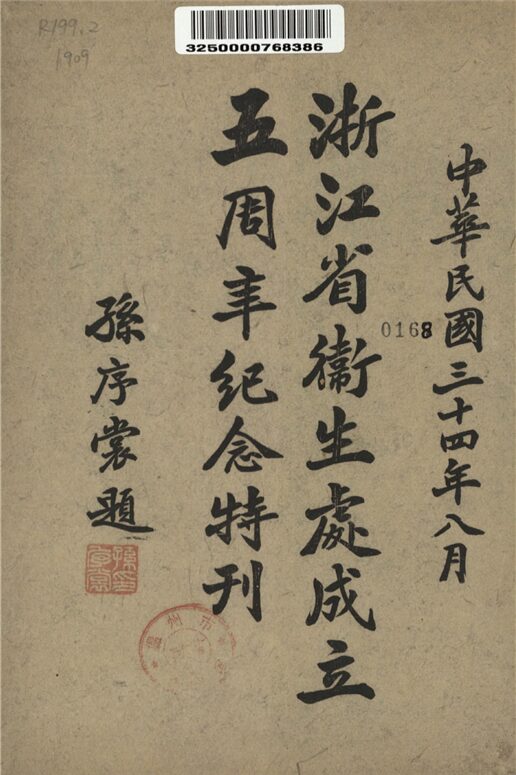 R199.2
1909
3250000768386
中華民國三十四年八月
0168
浙江省衞生處成立
五周年纪念特刊
孫序裳題
溫州市